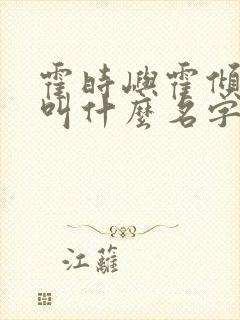 霍时嶼霍傾
叫什麼名字
江蘺